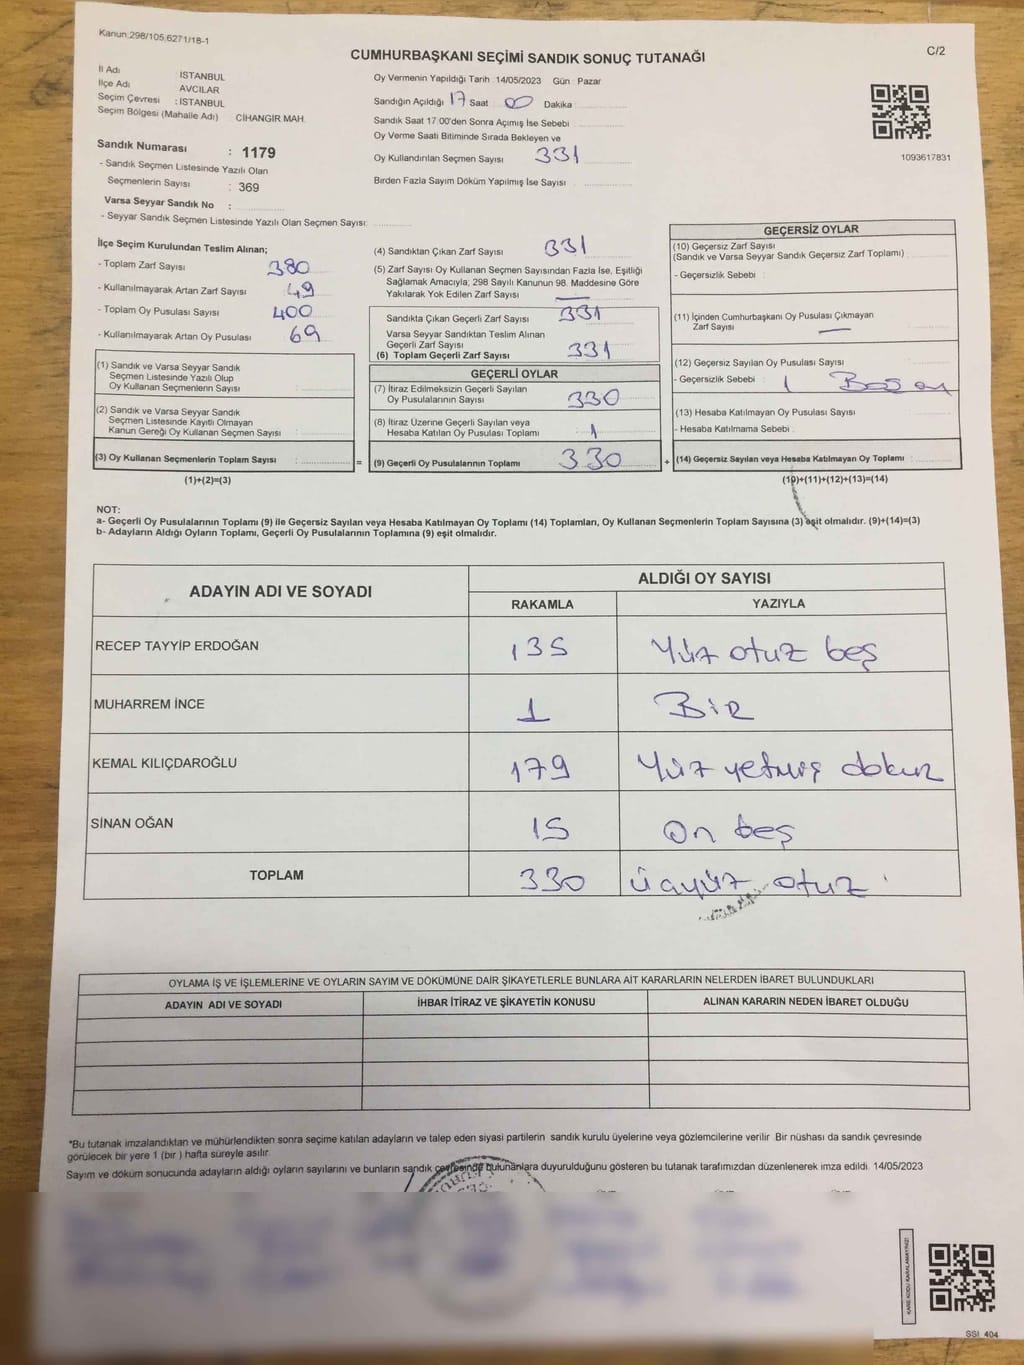 Kanun:298/105,6271/18-1
C/2
CUMHURBAŞKANI SEÇİMİ SANDIK SONUÇ TUTANAĞI
İl Adı İSTANBUL
İlçe Adı AVCILAR
Seçim Çevresi : İSTANBUL
Seçim Bölgesi (Mahalle Adı) CİHANGİR MAH.
Sandık Numarası : 1179
- Sandık Seçmen Listesinde Yazılı Olan
Seçmenlerin Sayısı : 369
Varsa Seyyar Sandık No :
- Seyyar Sandık Seçmen Listesinde Yazılı Olan Seçmen Sayısı:
Oy Vermenin Yapıldığı Tarih :14/05/2023 Gün : Pazar
Sandığın Açıldığı 17 Saat 00 Dakika :
Sandık Saat 17:00'den Sonra Açımış İse Sebebi :
Oy Verme Saati Bitiminde Sırada Bekleyen ve
Oy Kullandırılan Seçmen Sayısı 331
Birden Fazla Sayım Döküm Yapılmış İse Sayısı :
1093617831
İlçe Seçim Kurulundan Teslim Alınan;
- Toplam Zarf Sayısı 380
- Kullanılmayarak Artan Zarf Sayısı 49
- Toplam Oy Pusulası Sayısı 400
- Kullanılmayarak Artan Oy Pusulası 69
(1) Sandık ve Varsa Seyyar Sandık
Seçmen Listesinde Yazılı Olup
Oy Kullanan Seçmenlerin Sayısı :
(2) Sandık ve Varsa Seyyar Sandık
Seçmen Listesinde Kayıtlı Olmayan
Kanun Gereği Oy Kullanan Seçmen Sayısı :
(3) Oy Kullanan Seçmenlerin Toplam Sayısı : =
(1)+(2)=(3)
(4) Sandıktan Çıkan Zarf Sayısı 331
(5) Zarf Sayısı Oy Kullanan Seçmen Sayısından Fazla İse, Eşitliği
Sağlamak Amacıyla; 298 Sayılı Kanunun 98. Maddesine Göre
Yakılarak Yok Edilen Zarf Sayısı
Sandıkta Çıkan Geçerli Zarf Sayısı 331
Varsa Seyyar Sandıktan Teslim Alınan
Geçerli Zarf Sayısı
(6) Toplam Geçerli Zarf Sayısı 331
GEÇERLİ OYLAR
(7) İtiraz Edilmeksizin Geçerli Sayılan
Oy Pusulalarının Sayısı 330
(8) İtiraz Üzerine Geçerli Sayılan veya
Hesaba Katılan Oy Pusulası Toplamı : 1
(9) Geçerli Oy Pusulalarının Toplamı 330 +
GEÇERSİZ OYLAR
(10) Geçersiz Zarf Sayısı
(Sandık ve Varsa Seyyar Sandık Geçersiz Zarf Toplamı)
- Geçersizlik Sebebi :
(11) İçinden Cumhurbaşkanı Oy Pusulası Çıkmayan
Zarf Sayısı
(12) Geçersiz Sayılan Oy Pusulası Sayısı
- Geçersizlik Sebebi : 1
(13) Hesaba Katılmayan Oy Pusulası Sayısı
- Hesaba Katılmama Sebebi :
(14) Geçersiz Sayılan veya Hesaba Katılmayan Oy Toplamı :
(10)+(11)+(12)+(13)=(14)
NOT:
a- Geçerli Oy Pusulalarının Toplamı (9) ile Geçersiz Sayılan veya Hesaba Katılmayan Oy Toplamı (14) Toplamları, Oy Kullanan Seçmenlerin Toplam Sayısına (3) eşit olmalıdır. (9)+(14)=(3)
b- Adayların Aldığı Oyların Toplamı, Geçerli Oy Pusulalarının Toplamına (9) eşit olmalıdır.
ADAYIN ADI VE SOYADI ALDIĞI OY SAYISI
RAKAMLA YAZIYLA
RECEP TAYYİP ERDOĞAN 135 Yüz otuz beş
MUHARREM İNCE 1 BİR
KEMAL KILIÇDAROĞLU 179 Yüz yetmiş dokuz
SİNAN OĞAN 15 On beş
TOPLAM 330 üçyüz otuz
OYLAMA İŞ VE İŞLEMLERİNE VE OYLARIN SAYIM VE DÖKÜMÜNE DAİR ŞİKAYETLERLE BUNLARA AİT KARARLARIN NELERDEN İBARET BULUNDUKLARI
ADAYIN ADI VE SOYADI İHBAR İTİRAZ VE ŞİKAYETİN KONUSU ALINAN KARARIN NEDEN İBARET OLDUĞU
*Bu tutanak imzalandıktan ve mühürlendikten sonra seçime katılan adayların ve talep eden siyasi partilerin sandık kurulu üyelerine veya gözlemcilerine verilir. Bir nüshası da sandık çevresinde
görülecek bir yere 1 (bir) hafta süreyle asılır.
Sayım ve döküm sonucunda adayların aldığı oyların sayılarını ve bunların sandık çevresinde bulunanlara duyurulduğunu gösteren bu tutanak tarafımızdan düzenlenerek imza edildi. 14/05/2023
KARE KODU KARALAMAYINIZ!
SSİ 404